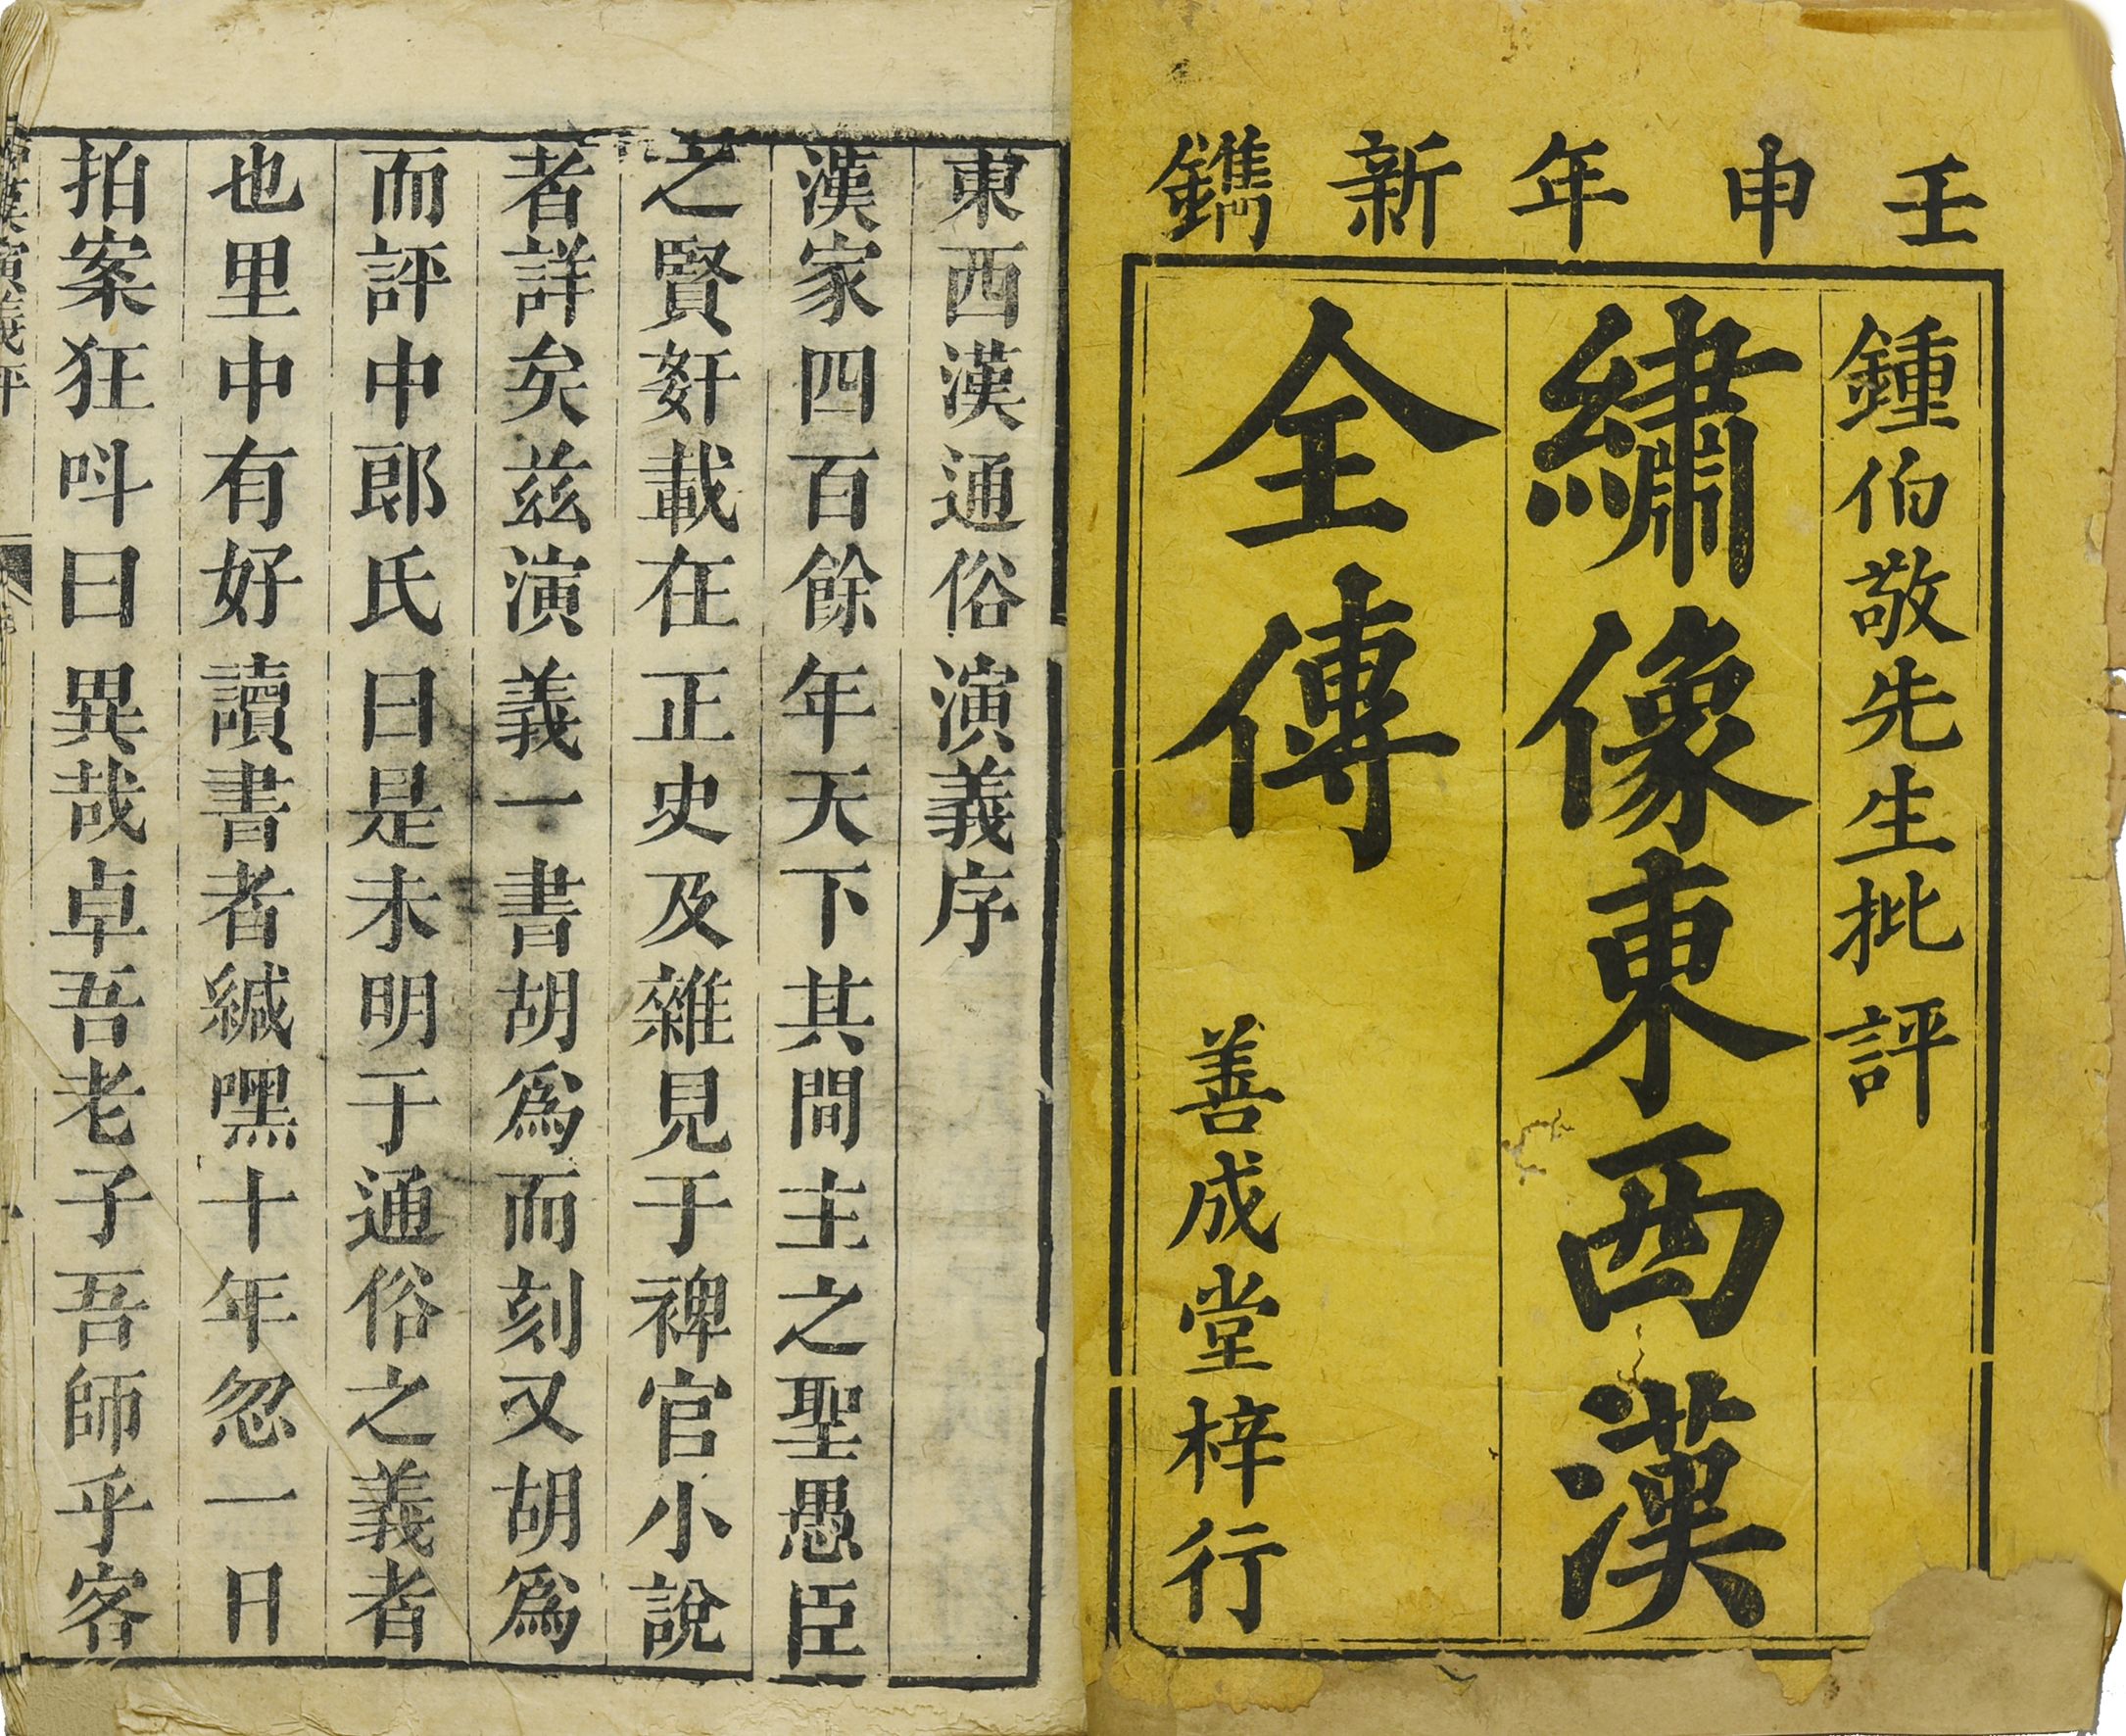 壬申年新鐫
鍾伯敬先生批評
繡像東西漢
全傳
善成堂梓行
東西漢通俗演義序
漢家四百餘年天下其間主之聖愚臣
之賢奸載在正史及雜見于稗官小說
者詳矣茲演義一書胡爲而刻又胡爲
而評中郎氏曰是未明于通俗之義者
也里中有好讀書者緘嘿十年忽一日
拍案狂呌曰異哉卓吾老子吾師乎客
漢演義評